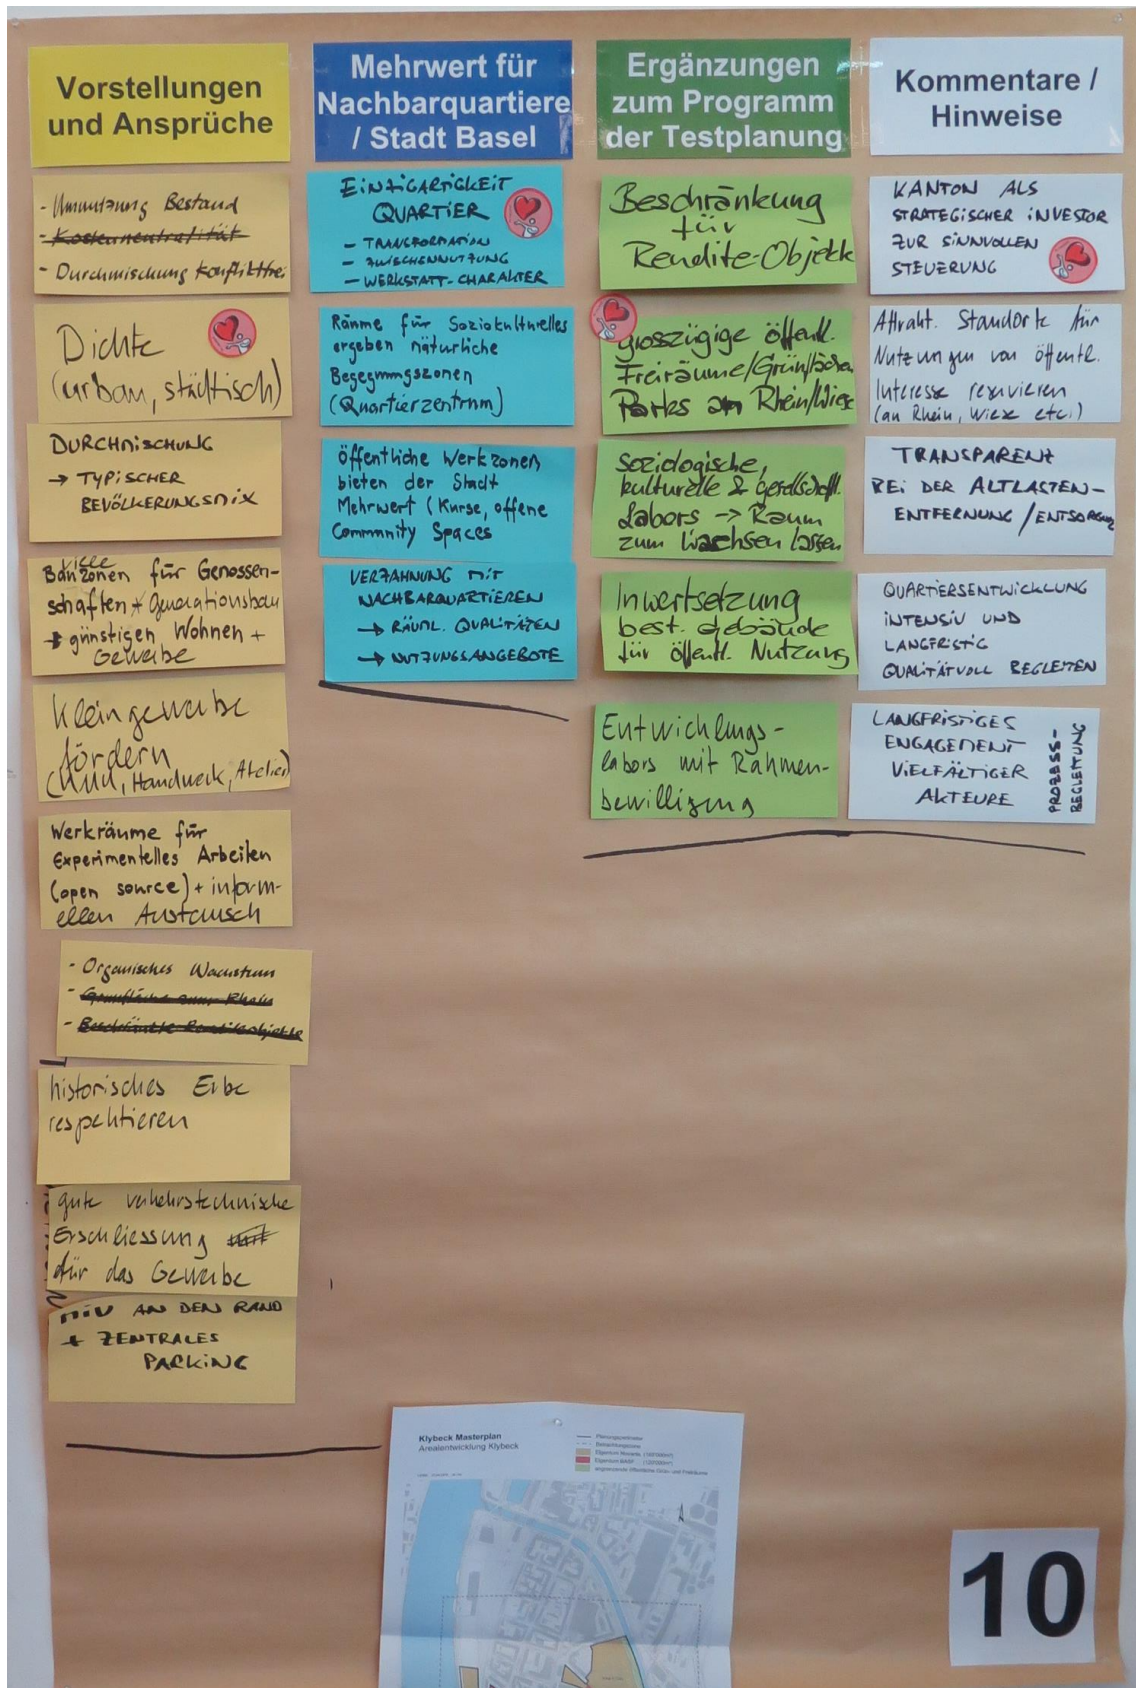 Vorstellungen
und Ansprüche
- Umnutzung Bestand
- Kostenneutralität
- Durchmischung konfliktfrei
Dichte
(urban, städtisch)
DURCHMISCHUNG
→ TYPISCHER
BEVÖLKERUNGSMIX
viele
Bauzonen für Genossen-
schaften + Generationsbau
→ günstigen Wohnen +
Gewerbe
Kleingewerbe
fördern
Handwerk, Atelier)
Werkräume für
Experimentelles Arbeiten
(open source) + inform-
ellen Austausch
- Organisches Wachstum
- Grünfläche zum Rhein
- Beschränkte Renditeobjekte
historisches Erbe
respektieren
gute verkehrstechnische
Erschliessung mit
für das Gewerbe
MIV AN DEN RAND
+ ZENTRALES
PARKING
Mehrwert für
Nachbarquartiere
/ Stadt Basel
EINZIGARTIGKEIT
QUARTIER
- TRANSFORMATION
- ZWISCHENNUTZUNG
- WERKSTATT-CHARAKTER
Räume für Soziokulturelles
ergeben natürliche
Begegnungszonen
(Quartierzentrum)
öffentliche Werkzonen
bieten der Stadt
Mehrwert (Kurse, offene
Community Spaces
VERZAHNUNG MIT
NACHBARQUARTIEREN
→ RÄUML. QUALITÄTEN
→ NUTZUNGSANGEBOTE
Ergänzungen
zum Programm
der Testplanung
Beschränkung
für
Rendite-Objekte
grosszügige öffentl.
Freiräume/Grünflächen
Parks an Rhein/Wiese
Soziologische,
kulturelle & gesellschaftl.
Labors → Raum
zum Wachsen lassen
Inwertsetzung
best. Gebäude
für öffentl. Nutzung
Entwicklungs-
labors mit Rahmen-
bewilligung
Kommentare /
Hinweise
KANTON ALS
STRATEGISCHER INVESTOR
ZUR SINNVOLLEN
STEUERUNG
Attrakt. Standorte für
Nutzungen von öffentl.
Interesse reservieren
(an Rhein, Wiese etc.)
TRANSPARENZ
BEI DER ALTLASTEN-
ENTFERNUNG/ENTSORGUNG
QUARTIERSENTWICKLUNG
INTENSIV UND
LANGFRISTIG
QUALITÄTVOLL BEGLEITEN
LANGFRISTIGES
ENGAGEMENT
VIELFÄLTIGER
AKTEURE
PROZESS-
BEGLEITUNG
Klybeck Masterplan
Arealentwicklung Klybeck
Planungsperimeter
Betrachtungszone
Eigentum Novartis
Eigentum BASF
angrenzende öffentliche Grün- und Freiräume
10